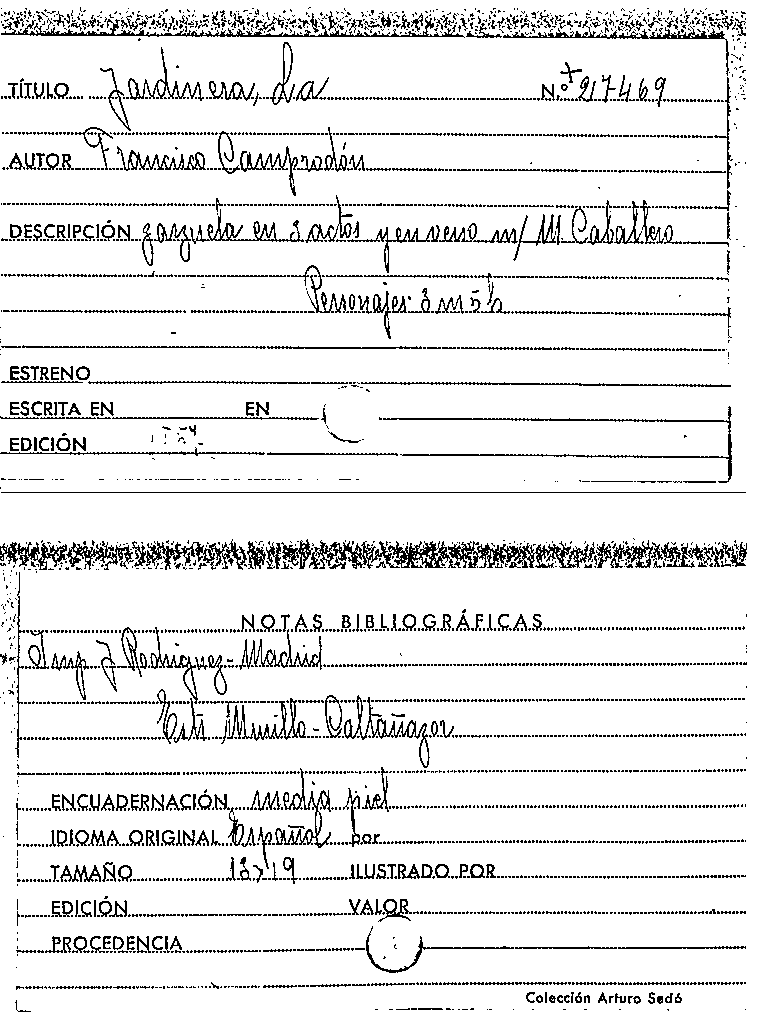 TÍTULO Jardinera, La N.º +217469
AUTOR Francisco Camprodón
DESCRIPCIÓN zarzuela en 3 actos y en verso m/ M Caballero
Personajes 3 m 5 h
ESTRENO
ESCRITA EN EN
EDICIÓN
NOTAS BIBLIOGRÁFICAS
Imp J Rodriguez - Madrid
Murillo - Caltañazor
ENCUADERNACIÓN media piel
IDIOMA ORIGINAL Español por
TAMAÑO 13 x 19 ILUSTRADO POR
EDICIÓN VALOR
PROCEDENCIA
Colección Arturo Sedó